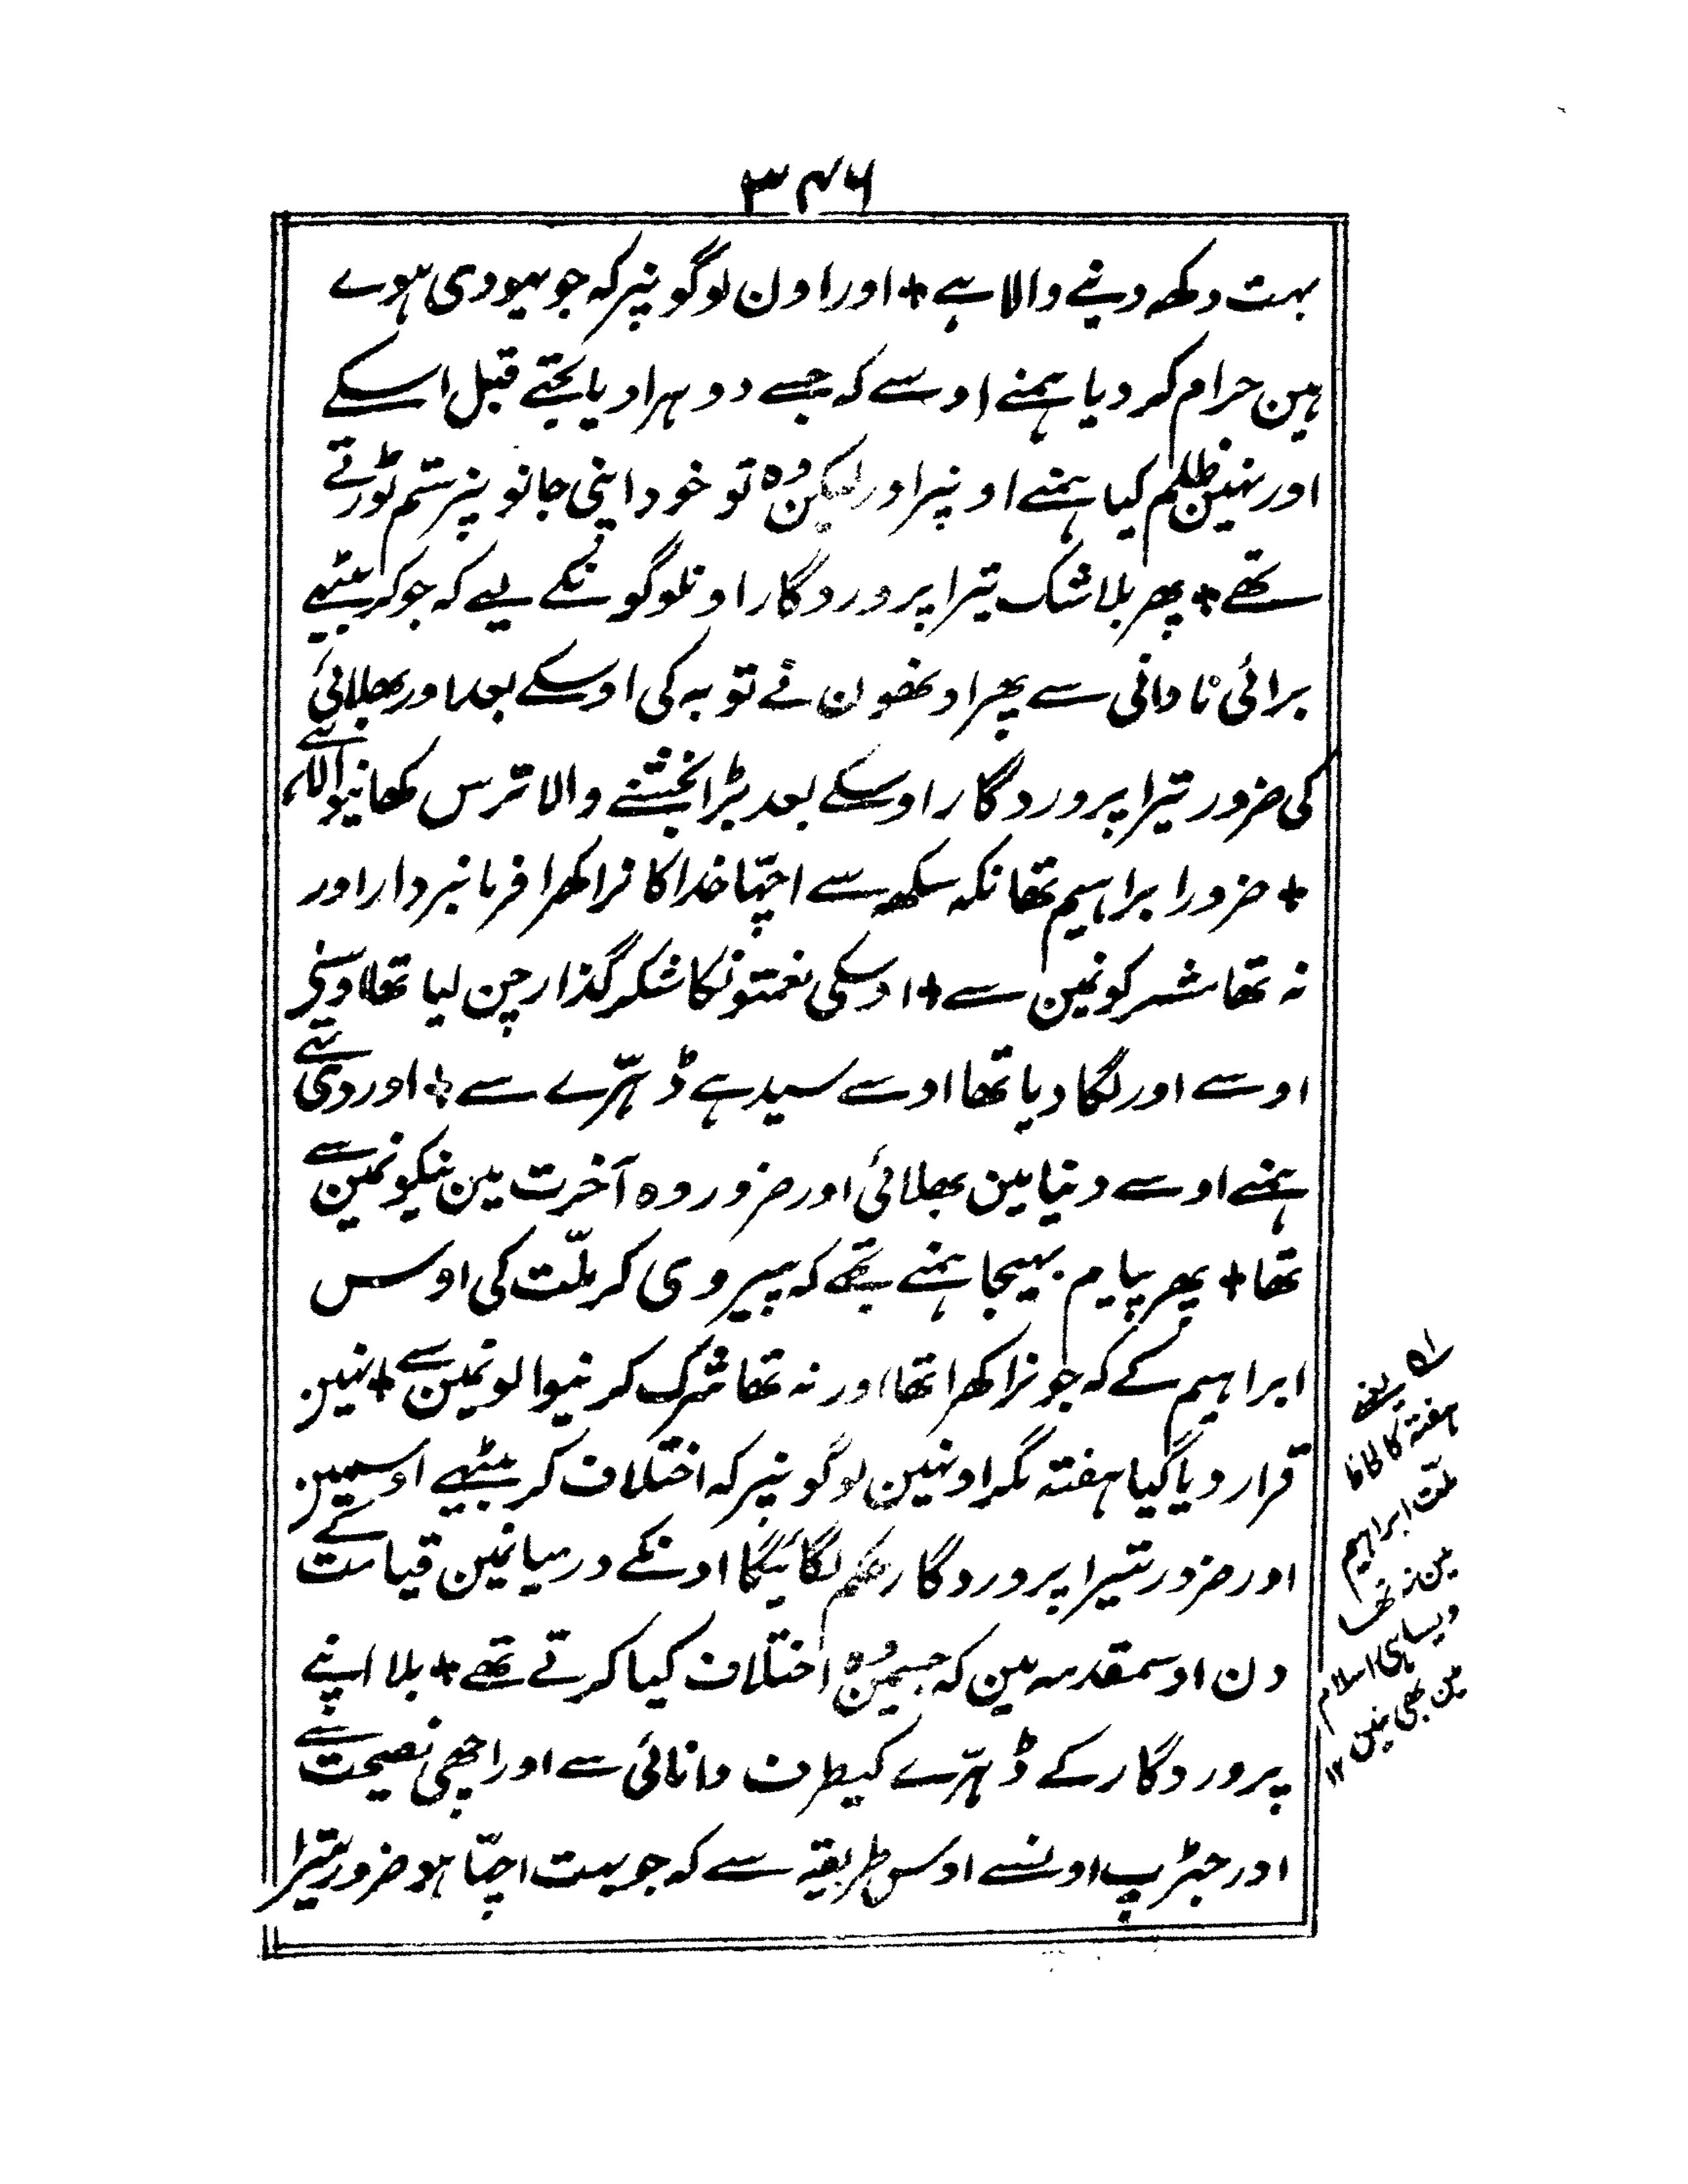 ۳۴۶
بہت دکھ دینے والا ہے + اور اون لوگونپر کہ جو یہودی ہوے
ہین حرام کر دیا ہمنے اوسے کہ جسے دوہرا دیا تجھے قبل اسکے
اور نہین ظلم کیا ہمنے اونپر اور لیکن وہ تو خود اپنی جانونپر ستم توڑتے
تھے + پھر بلا شک تیرا پروردگار اونلوگونکے لیے کہ جو کر بیٹھے
برائی نادانی سے پھر اونھون نے توبہ کی اوسکے بعد اور بھلائی
کی ضرور تیرا پروردگار اوسکے بعد بڑا بخشنے والا ترس کھانیوالا ہے
+ ضرور ابراہیم تھا نکہ سکھ سے اچھا خدا کا نرا کھرا فرمانبردار اور
نہ تھا مشرکونمین سے + اوسکی نعمتونکا شکر گذار چن لیا تھا اوسنے
اوسے اور لگا دیا تھا اوسے سیدہے ڈہرّے سے + اور دی تھی
ہمنے اوسے دنیا مین بھلائی اور ضرور وہ آخرت مین نیکونمین سے
تھا + پھر پیام بھیجا ہمنے تجھے کہ پیروی کر ملّت کی اوس
ابراہیم کے کہ جو نرا کھرا تھا اور نہ تھا شرک کرنیوالونمین سے + نہین
قرار دیا گیا ہفتہ مگر اونہین لوگونپر کہ اختلاف کر بیٹھے اوسمین
اور ضرور تیرا پروردگار حکم لگائیگا اونکے درمیانمین قیامت کے
دن اوسمقدمہ مین کہ جسمین وہ اختلاف کیا کرتے تھے + بلا اپنے
پروردگار کے ڈہرّے کیطرف دانائی سے اور اچھی نصیحت سے
اور جھڑپ اونسے اوس طریقہ سے کہ جو بہت اچھا ہو ضرور تیرا
یعنے
ہفتہ کا لحاظ
ملّت ابراہیم
مین نہ تھا
ویسا ہی اسلام
مین بھی نہین ۱۲